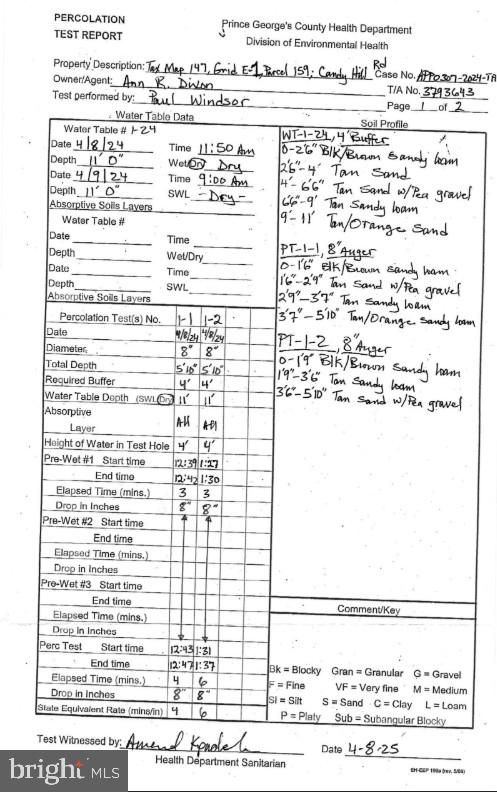 PERCOLATION
TEST REPORT
Prince George's County Health Department
Division of Environmental Health
Property Description: Tax Map 147, Grid E-1, Parcel 159; Candy Hill Rd
Case No. APP0307-2024-TA
Owner/Agent: Ann R. Dixon
T/A No. 3793643
Test performed by: Paul Windsor
Page 1 of 2
Water Table Data
Water Table # 1-24
Date 4/8/24 Time 11:50 Am
Depth 11' 0" Wet/Dry Dry
Date 4/9/24 Time 9:00 Am
Depth 11' 0" SWL - Dry -
Absorptive Soils Layers
Water Table #
Date Time
Depth Wet/Dry
Date Time
Depth SWL
Absorptive Soils Layers
Percolation Test(s) No. 1-1 1-2
Date 4/8/24 4/8/24
Diameter 8" 8"
Total Depth 5'10" 5'10"
Required Buffer 4' 4'
Water Table Depth (SWL/Dry) 11' 11'
Absorptive
Layer All All
Height of Water in Test Hole 4' 4'
Pre-Wet #1 Start time 12:39 1:27
End time 12:42 1:30
Elapsed Time (mins.) 3 3
Drop in Inches 8" 8"
Pre-Wet #2 Start time
End time
Elapsed Time (mins.)
Drop in Inches
Pre-Wet #3 Start time
End time
Elapsed Time (mins.)
Drop in Inches
Perc Test Start time 12:43 1:31
End time 12:47 1:37
Elapsed Time (mins.) 4 6
Drop in Inches 8" 8"
State Equivalent Rate (mins/in) 4 6
Soil Profile
WT-1-24, 4' Buffer
0-2'6" Blk/Brown Sandy loam
2'6"-4' Tan Sand
4'-6'6" Tan Sand w/Pea gravel
6'6"-9' Tan Sandy loam
9'-11' Tan/Orange Sand
PT-1-1, 8" Auger
0-1'6" Blk/Brown sandy loam
1'6"-2'9" Tan Sand w/Pea gravel
2'9"-3'7" Tan Sandy loam
3'7"-5'10" Tan/Orange sandy loam
PT-1-2, 8" Auger
0-1'9" Blk/Brown Sandy loam
1'9"-3'6" Tan Sandy loam
3'6"-5'10" Tan Sand w/Pea gravel
Comment/Key
Bk = Blocky Gran = Granular G = Gravel
F = Fine VF = Very fine M = Medium
SI = Silt S = Sand C = Clay L = Loam
P = Platy Sub = Subangular Blocky
Test Witnessed by:
Date 4-8-25
Health Department Sanitarian
bright MLS